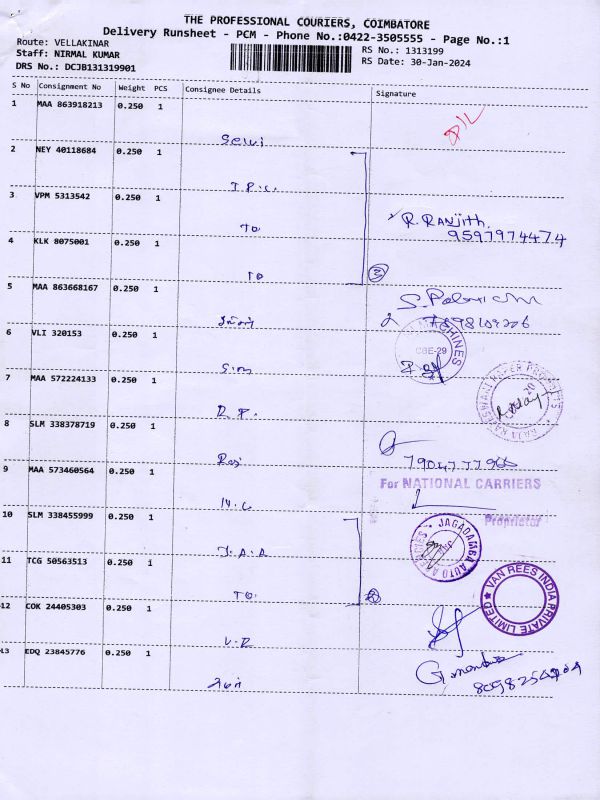 THE PROFESSIONAL COURIERS, COIMBATORE
Delivery Runsheet - PCM - Phone No.:0422-3505555 - Page No.:1
Route: VELLAKINAR
Staff: NIRMAL KUMAR
DRS No.: DCJB131319901
RS No.: 1313199
RS Date: 30-Jan-2024
S No Consignment No Weight PCS Consignee Details Signature
1 MAA 863918213 0.250 1
2 NEY 40118684 0.250 1
I.P.C.
3 VPM 5313542 0.250 1
To
R. RANjith.
9597974474
4 KLK 8075001 0.250 1
To
3
5 MAA 863668167 0.250 1
6 VLI 320153 0.250 1
MACHINES
CBE-29
7 MAA 572224133 0.250 1
D.P.
8 SLM 338378719 0.250 1
9 MAA 573460564 0.250 1
For NATIONAL CARRIERS
Proprietor
N.C
10 SLM 338455999 0.250 1
J.A.A
JAGADAMBA AUTO AGENCIES
11 TCG 50563513 0.250 1
To.
VAN REES INDIA PRIVATE LIMITED
12 COK 24405303 0.250 1
13 EDQ 23845776 0.250 1